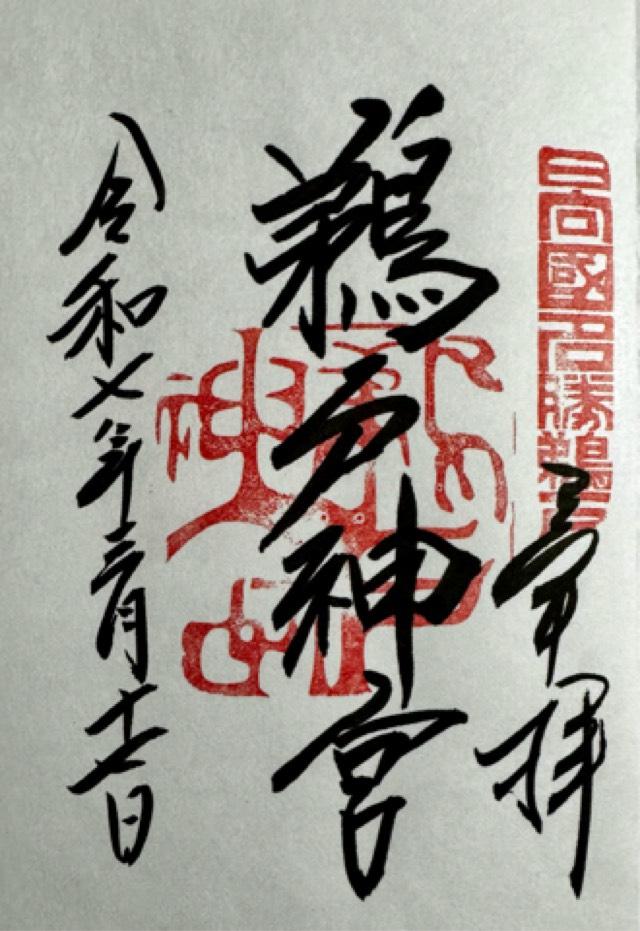 日向國名勝鵜戸
奉拝
鵜戸神宮
令和七年三月十七日